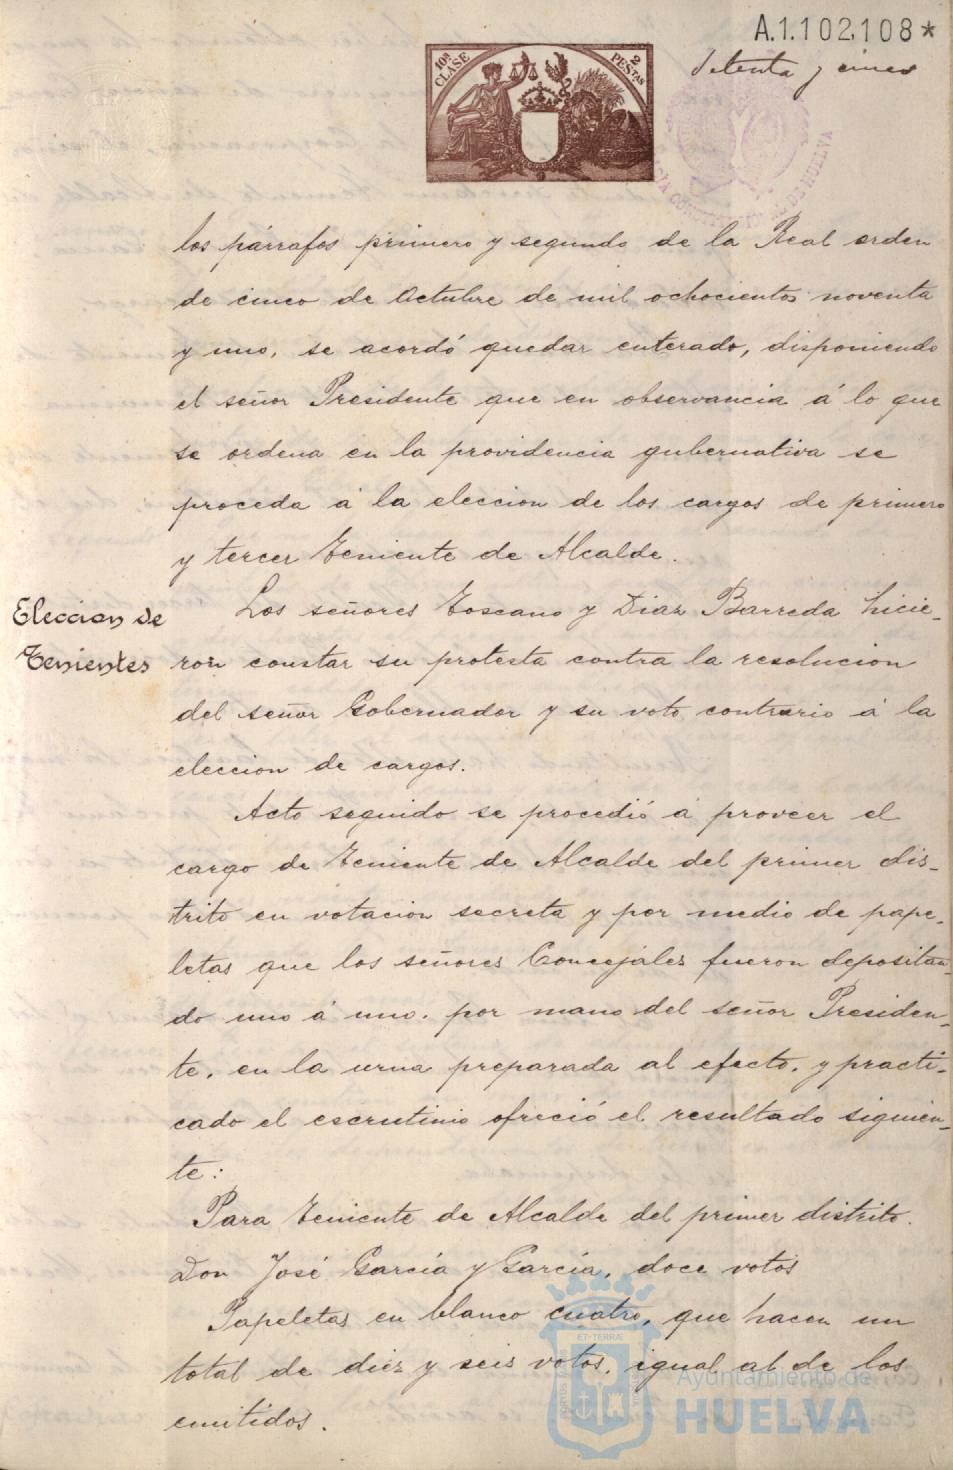 A.1.102,108*
Setenta y cinco
10ª CLASE
2 PESTAS
DE HUELVA
los párrafos primero y segundo de la Real orden
de cinco de Octubre de mil ochocientos noventa
y uno, se acordó quedar enterado, disponiendo
el señor Presidente que en observancia á lo que
se ordena en la providencia gubernativa se
proceda á la eleccion de los cargos de primero
y tercer Teniente de Alcalde.
Eleccion de
Tenientes
Los señores Toscano y Diaz Barreda hicie-
ron constar su protesta contra la resolucion
del señor Gobernador y su voto contrario á la
eleccion de cargos.
Acto seguido se procedió á proveer el
cargo de Teniente de Alcalde del primer dis-
trito en votacion secreta y por medio de pape-
letas que los señores Concejales fueron depositan-
do uno á uno, por mano del señor Presiden-
te, en la urna preparada al efecto, y practi-
cado el escrutinio ofreció el resultado siguien-
te:
Para Teniente de Alcalde del primer distrito.
Don José García y García, doce votos
Papeletas en blanco cuatro, que hacen un
total de diez y seis votos, igual al de los
emitidos.
ET TERRÆ
Ayuntamiento de
HUELVA